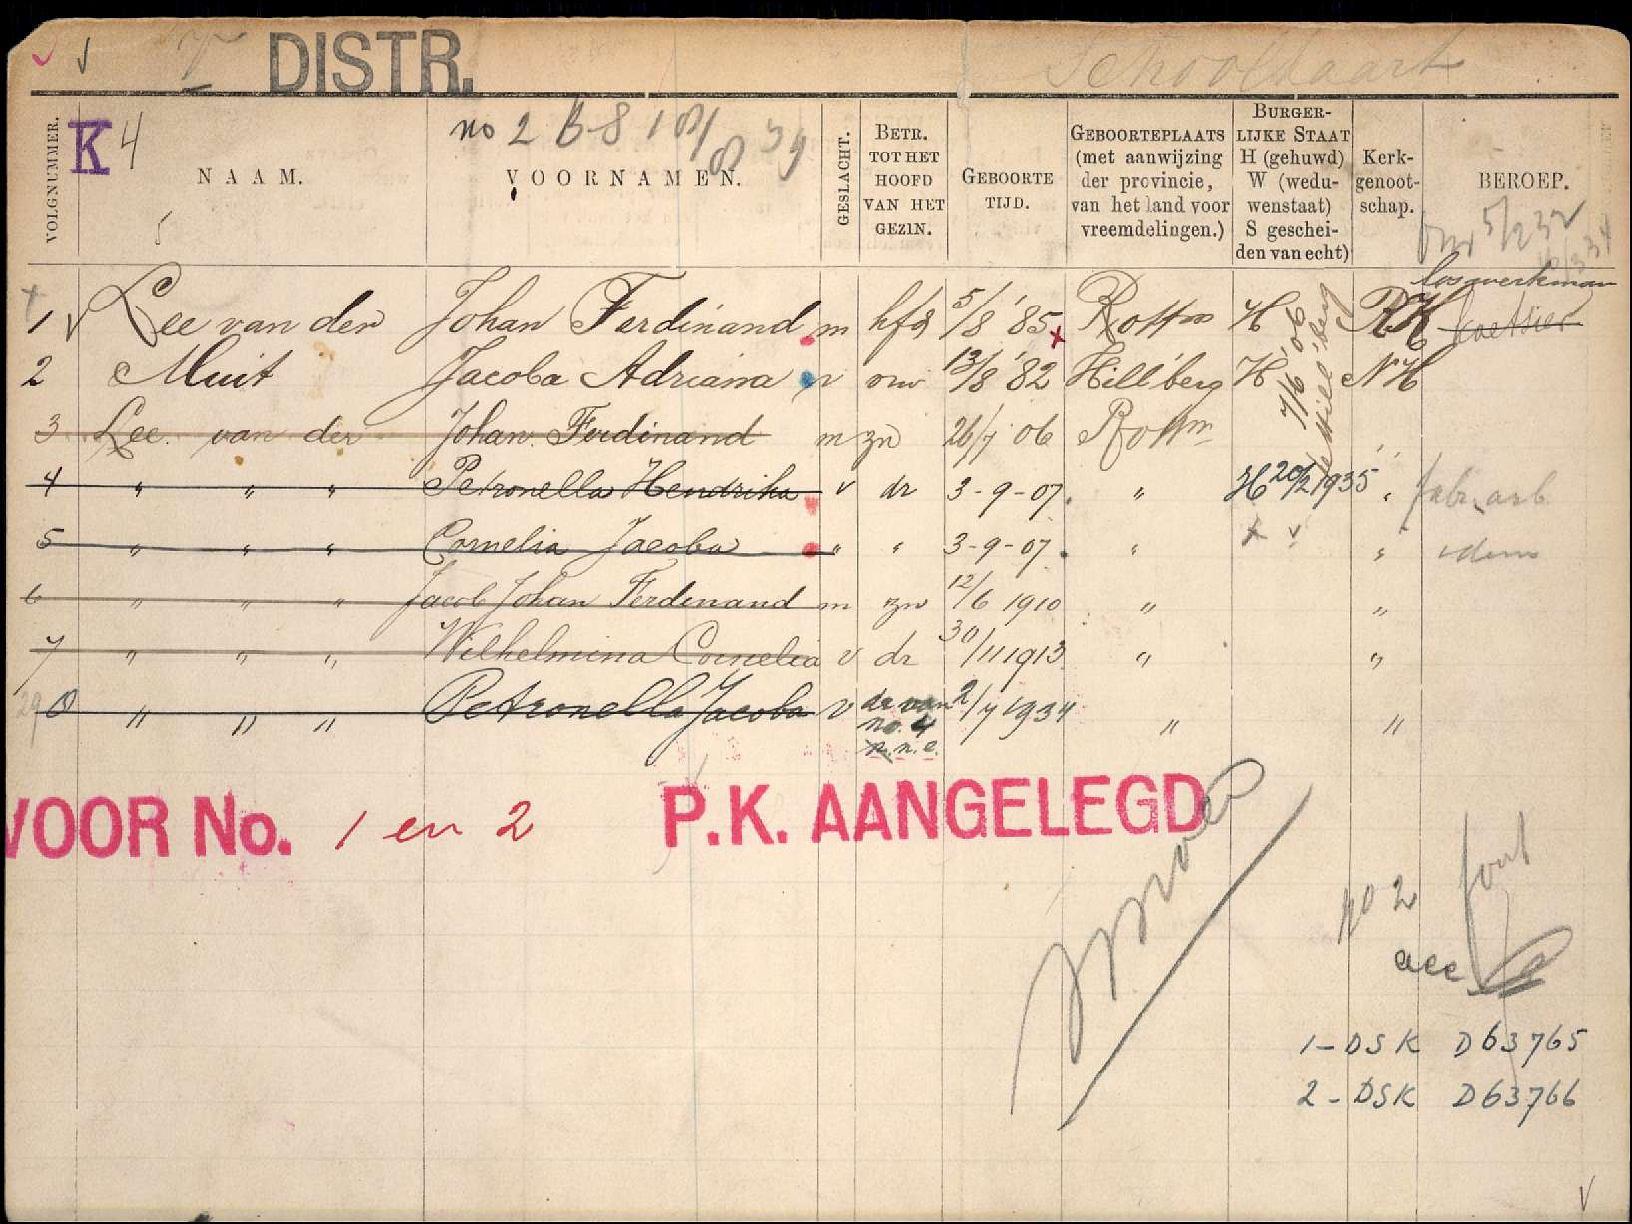 DISTR. Schoolkaart
K 4 no 2 B-8
VOLGNUMMER.
NAAM.
VOORNAMEN.
GESLACHT.
BETR. TOT HET HOOFD VAN HET GEZIN.
GEBOORTE TIJD.
GEBOORTEPLAATS (met aanwijzing der provincie, van het land voor vreemdelingen.)
BURGERLIJKE STAAT H (gehuwd) W (weduwenstaat) S gescheiden van echt)
Kerkgenootschap.
BEROEP.
5/2 32
loswerkman
1 V Lee van der Johan Ferdinand m hfd 5/8 '85 Rottm H RK koetsier
2 Muit Jacoba Adriana v vw 13/8 '82 Hill'berg H NH
7/6 '06 te Hill'berg
3 Lee van der Johan Ferdinand m zn 26/7 06 Rottm
4 " " " Petronella Hendrika v dr 3-9-07. " H 20/2 1935 " fabr. arb
5 " " " Cornelia Jacoba " " 3-9-07. " " idem
6 " " " Jacob Johan Ferdinand m zn 12/6 1910 " "
7 " " " Wilhelmina Cornelia v dr 30/11 1913 " "
8 " " " Petronella Jacoba v dr van no. 4 n.n.e. 2/7 1934 " "
VOOR No. 1 en 2 P.K. AANGELEGD
no 2 fout
acc
1-DSK D63765
2-DSK D63766
V